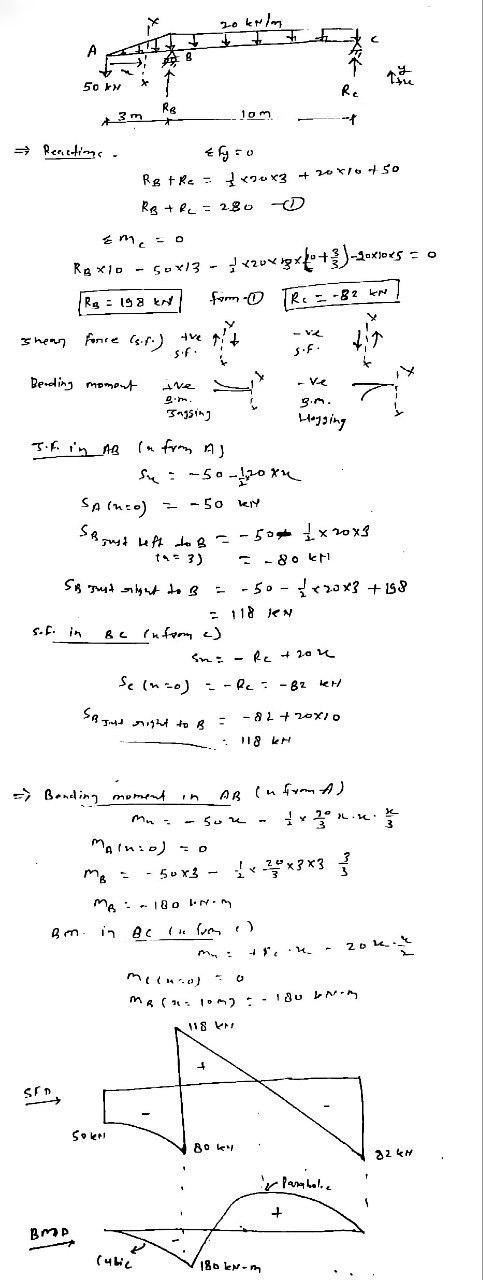 x
20 kN/m
A
B
C
x
x
50 kN
R_B
R_C
y
+x
3m
10m
⇒ Reactions.
Σ Fy = 0
R_B + R_C = 1/2 × 20 × 3 + 20 × 10 + 50
R_B + R_C = 280 — ①
Σ m_c = 0
R_B × 10 - 50 × 13 - 1/2 × 20 × 3 × (10 + 3/3) - 20×10×5 = 0
R_B = 198 kN from ① R_C = -82 kN
Shear force (s.f.) +ve s.f. x x -ve s.f. x x
Bending moment +ve B.m. Sagging x x -ve B.m. Hogging x x
S.F. in AB (x from A)
Sx = -50 - 1/2 20 × x
S_A (x=0) = -50 kN
S_B just left to B (x=3) = -50 - 1/2 × 20×3
= -80 kN
S_B just right to B = -50 - 1/2 × 20×3 + 198
= 118 kN
S.F. in BC (x from C)
Sx = - Rc + 20x
Sc (x=0) = -Rc = -82 kN
S_B just right to B = -82 + 20×10
= 118 kN
⇒ Bending moment in AB (x from A)
Mx = -50x - 1/2 × 20/3 x.x. x/3
M_A (x=0) = 0
M_B = -50×3 - 1/2 × 20/3 ×3×3 3/3
M_B = -180 kN-m
Bm. in BC (x from C)
Mx = +Rc.x - 20x.x/2
Mc (x=0) = 0
M_B (x=10m) = -180 kN-m
118 kN
+
SFD
-
-
50 kN
80 kN
82 kN
Parabolic
+
BMD
-
Cubic
180 kN-m